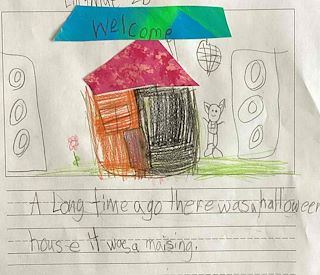 Welcome
A Long time ago there was a halloween
house It was a maising.